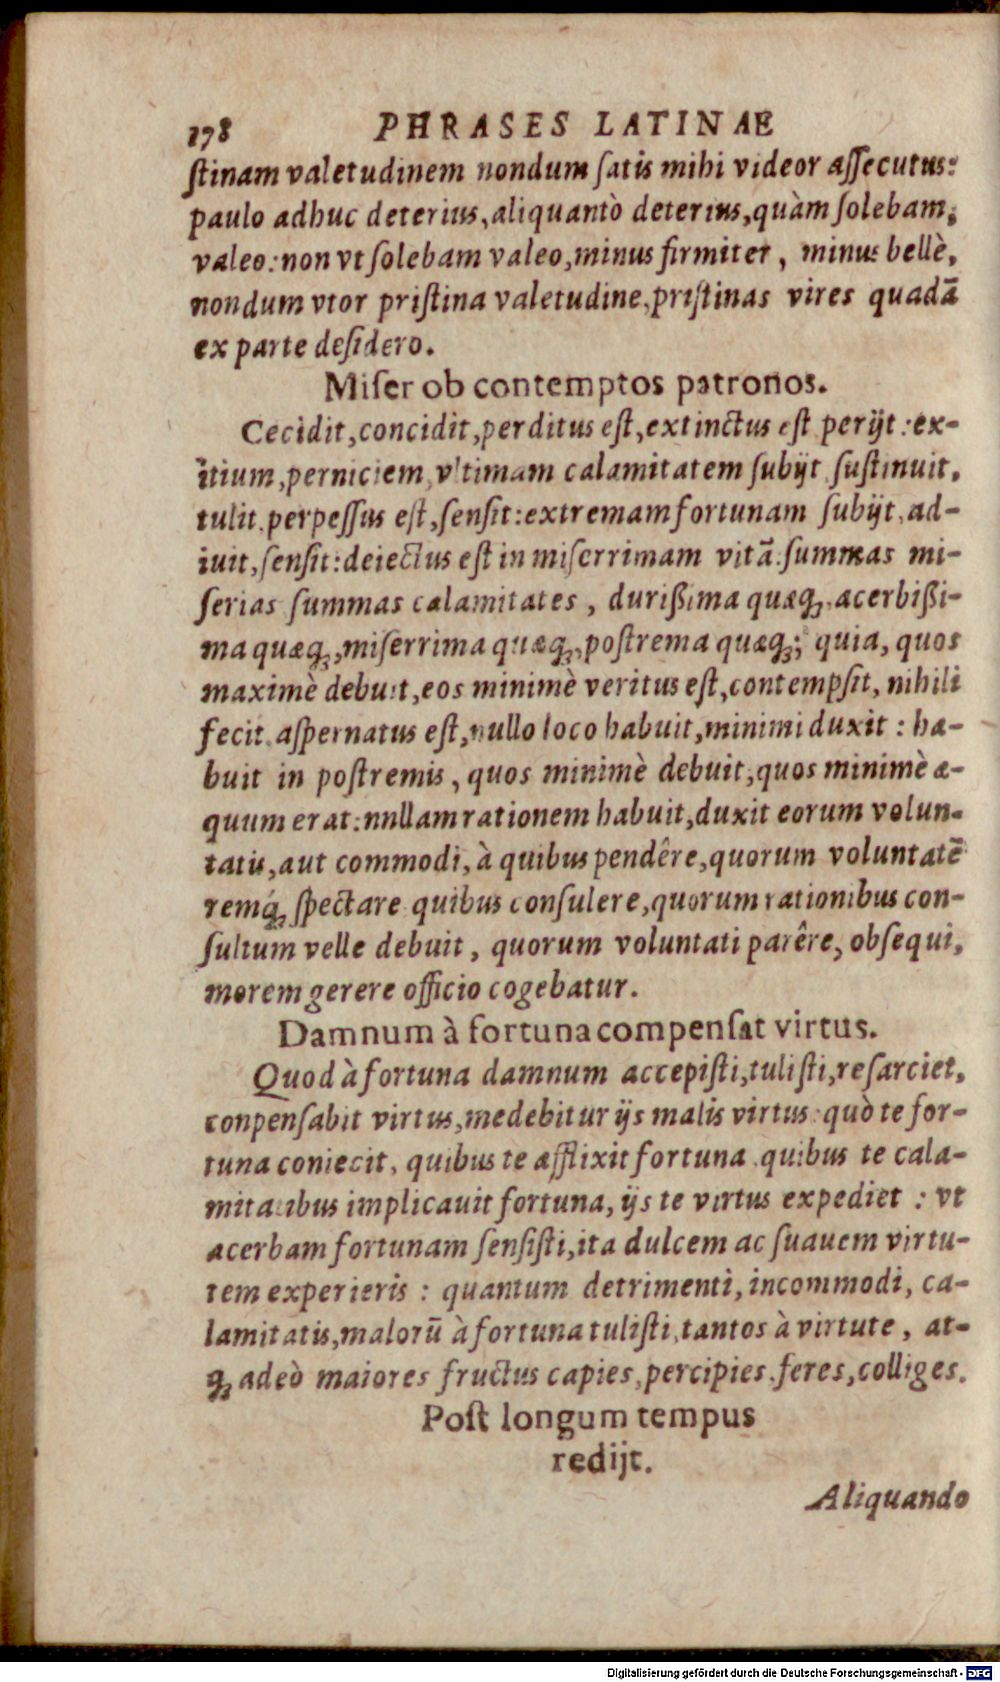 178 PHRASES LATINAE
ſtinam valetudinem nondum ſatis mihi videor aſſecutus:
paulo adhuc deterius, aliquantò deterius, quàm ſolebam,
valeo: non vt ſolebam valeo, minus firmiter, minus bellè,
nondum vtor priſtina valetudine, priſtinas vires quadā
ex parte deſidero.
Miſer ob contemptos patronos.
Cecidit, concidit, perditus eſt, extinctus eſt perijt: ex-
itium, perniciem, vltimam calamitatem ſubijt ſuſtinuit,
tulit, perpeſſus eſt, ſenſit: extremam fortunam ſubijt, ad-
iuit, ſenſit: deiectus eſt in miſerrimam vitā: ſummas mi-
ſerias ſummas calamitates, durißima quæq;, acerbißi-
ma quæq;, miſerrima quæq;, poſtrema quæq;; quia, quos
maximè debuit, eos minimè veritus eſt, contempſit, nihili
fecit, aſpernatus eſt, nullo loco habuit, minimi duxit: ha-
buit in poſtremis, quos minimè debuit, quos minimè æ-
quum erat: nnllam rationem habuit, duxit eorum volun-
tatis, aut commodi, à quibus pendêre, quorum voluntatē
remq́; ſpectare quibus conſulere, quorum rationibus con-
ſultum velle debuit, quorum voluntati parêre, obſequi,
morem gerere officio cogebatur.
Damnum à fortuna compenſat virtus.
Quod à fortuna damnum accepiſti, tuliſti, reſarciet,
conpenſabit virtus, medebitur ijs malis virtus: quò te for-
tuna coniecit, quibus te afflixit fortuna, quibus te cala-
mitatibus implicauit fortuna, ijs te virtus expediet: vt
acerbam fortunam ſenſiſti, ita dulcem ac ſuauem virtu-
tem experieris: quantum detrimenti, incommodi, ca-
lamitatis, malorū à fortuna tuliſti, tantos à virtute, at-
q; adeò maiores fructus capies, percipies, feres, colliges.
Poſt longum tempus
redijt.
Aliquando
Digitalisierung gefördert durch die Deutsche Forschungsgemeinschaft - DFG